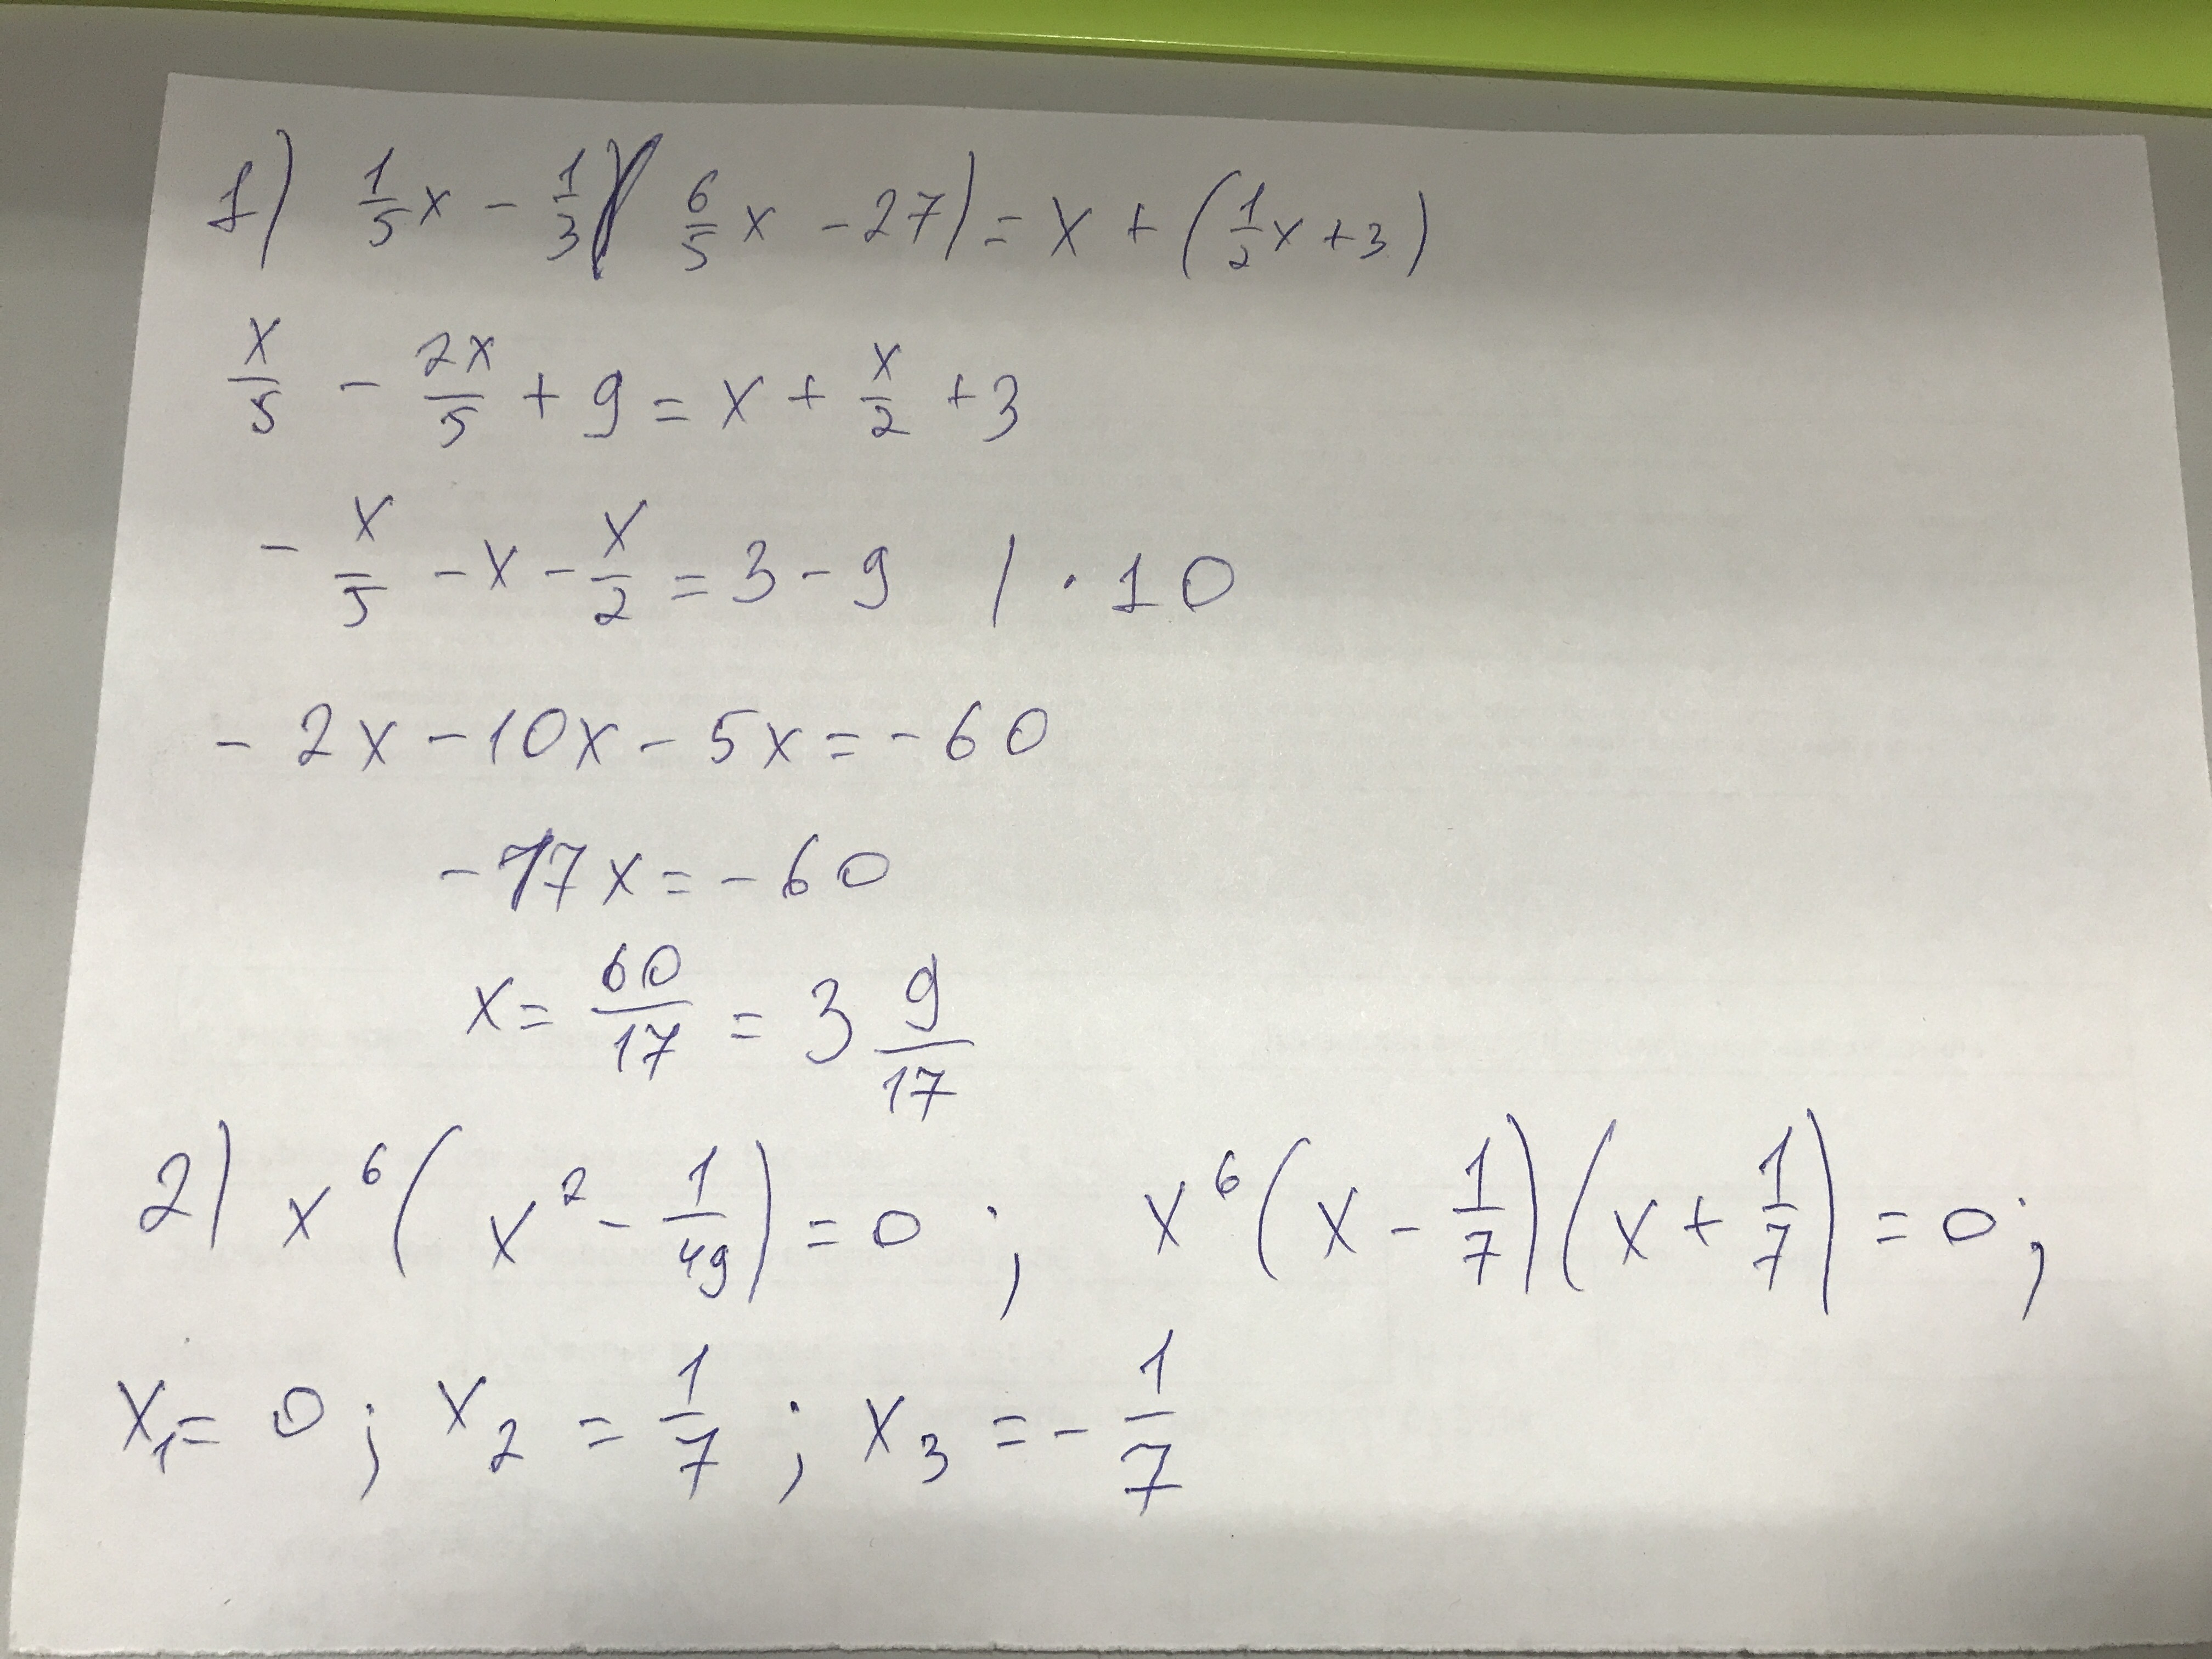 1) 1/5 x - 1/3 ( 6/5 x - 27) = x + (1/2 x + 3)
x/5 - 2x/5 + 9 = x + x/2 + 3
- x/5 - x - x/2 = 3 - 9 / · 10
- 2x - 10x - 5x = - 60
- 17x = - 60
x = 60/17 = 3 9/17
2) x⁶ (x² - 1/49) = 0 ; x⁶ (x - 1/7)(x + 1/7) = 0 ;
x₁ = 0 ; x₂ = 1/7 ; x₃ = - 1/7